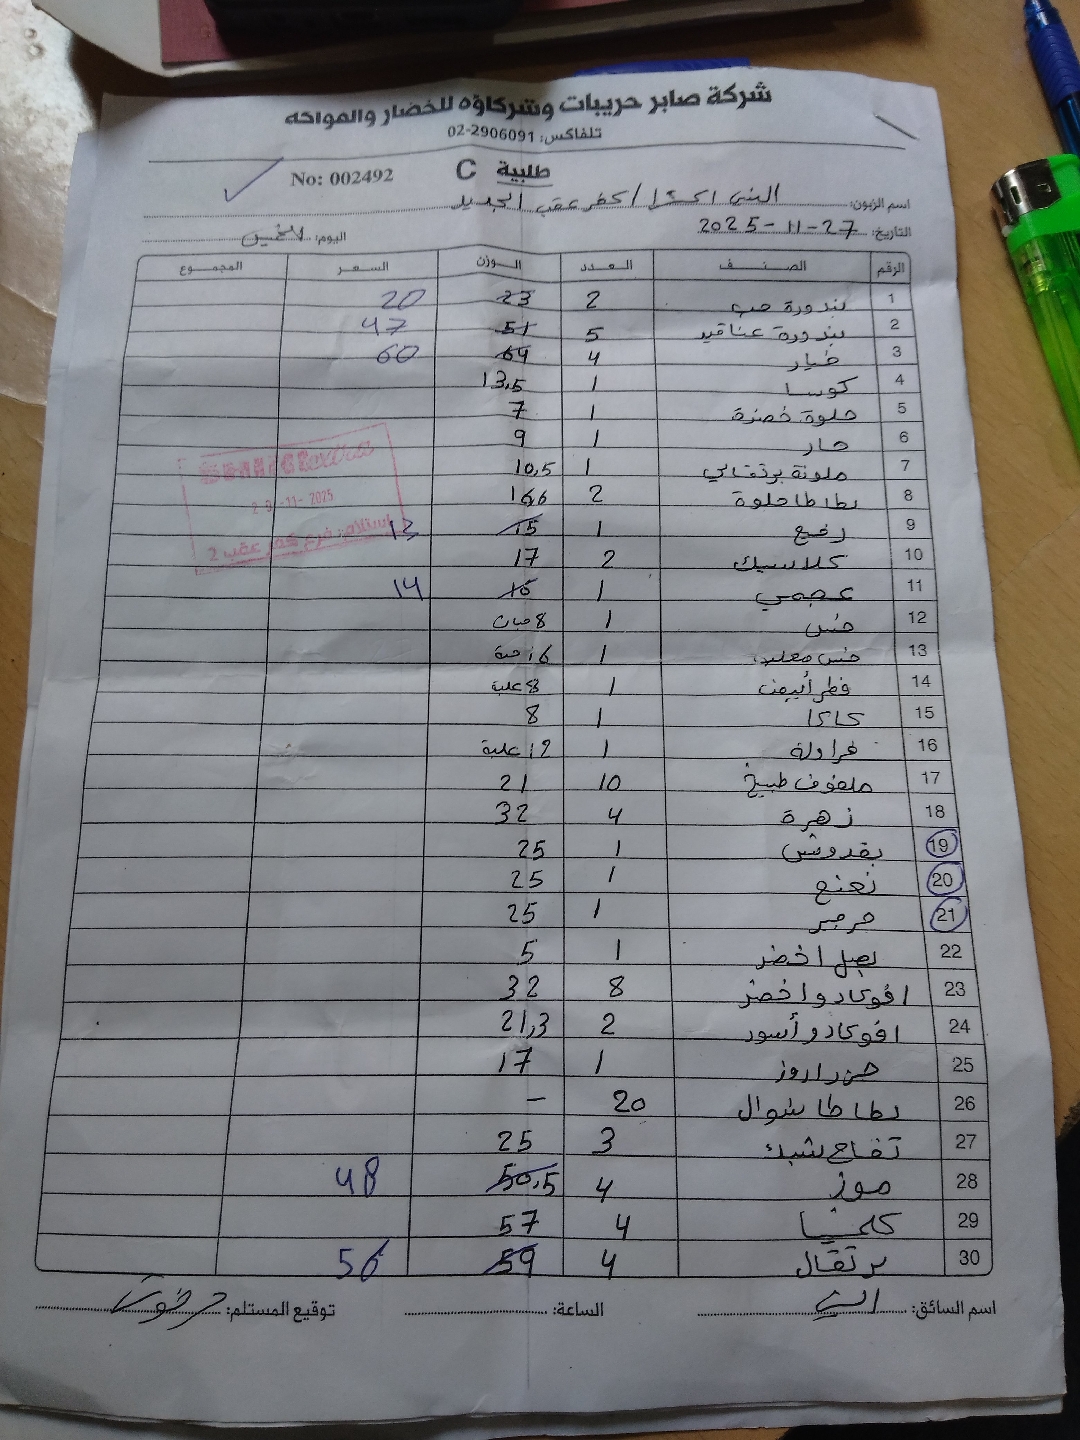 شركة صابر حريبات وشركاؤه للخضار والفواكه
تلفاكس: 02-2906091
طلبية C No: 002492
اسم الزبون: / كفر عقب الجديد
التاريخ: 27-11-2025 اليوم: الخميس
الرقم الصنف العدد الوزن السعر المجموع
1 بندورة حب 2 23 20
2 بندورة عناقيد 5 51 47
3 خيار 4 64 60
4 كوسا 1 13,5
5 حلوة خضرة 1 7
6 حار 1 9
7 ملونة برتقالي 1 10,5
8 بطاطا حلوة 2 16,6
9 رفيع 1 15 13
10 كلاسيك 2 17
11 عجمي 1 16 14
12 خس 1 8 حبات
13 خس 1 6 حبة
14 فطر أبيض 1 8 علبة
15 كاكا 1 8
16 فراولة 1 12 علبة
17 ملفوف طبيخ 10 21
18 زهرة 4 32
19 بقدونس 1 25
20 نعنع 1 25
21 جرجير 1 25
22 بصل اخضر 1 5
23 افوكادو اخضر 8 32
24 افوكادو أسود 2 21,3
25 1 17
26 بطاطا شوال 20 -
27 تفاح 3 25
28 موز 4 50,5 48
29 كلمنتينا 4 57
30 برتقال 4 59 56
-11- 2025
استلام: فرع كفر عقب 2
اسم السائق: الساعة: توقيع المستلم: